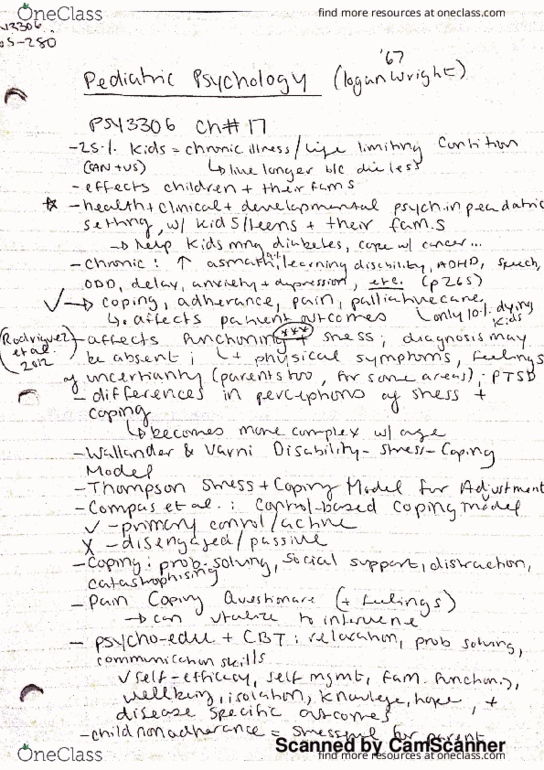 OneClass
find more resources at oneclass.com
3306
'67
Pediatric Psychology (logan Wright)
PSY3306 Ch#17
-25% Kids = chronic illness/life limiting Contition
(CAN+US) ↳ live longer b/c die less
- effects children + their fams
☆ - health + clinical + developmental psych.in peadatric
setting, w/ kids/teens + their fam.s
→ help kids mng diabetes, cope w/ cancer...
- chronic : ↑ asmath, learning discbility, ADHD, speech,
ODD, delay, anxiety + depression, etc. (p265)
✓→ coping, adherance, pain, palliative care
↳ affects patient outcomes (only 10% dying kids
(Rodriguez et al. 2012)
- affects functioning *** stress; diagnosis may
be absent ; ↳ physical symptoms, feelings
of uncertianty (parents too, for some areas); PTSD
- differences in perceptions of stress +
coping
↳ becomes more complex w/ age
- Wallander & Varni Disability-Stress-Coping
Model
- Thompson Stress + Coping Model for Adjustment
- Compas et al. : Control-based Coping model
✓ - primary control/active
X - disengaged/passive
- Coping : prob-solving, social support, distraction,
catastrophising
- Pain Coping Questionare (+ feelings)
→ can utalize to intervene
- psycho-edu + CBT : relaxation, prob solving,
communication skills
✓ self-efficacy, self mgmt, fam. function.),
wellbeing, isolation, knowlege, hope, +
disease specific outcomes
- child nonadherance = stressful for parent
Scanned by CamScanner
OneClass
find more resources at oneclass.com